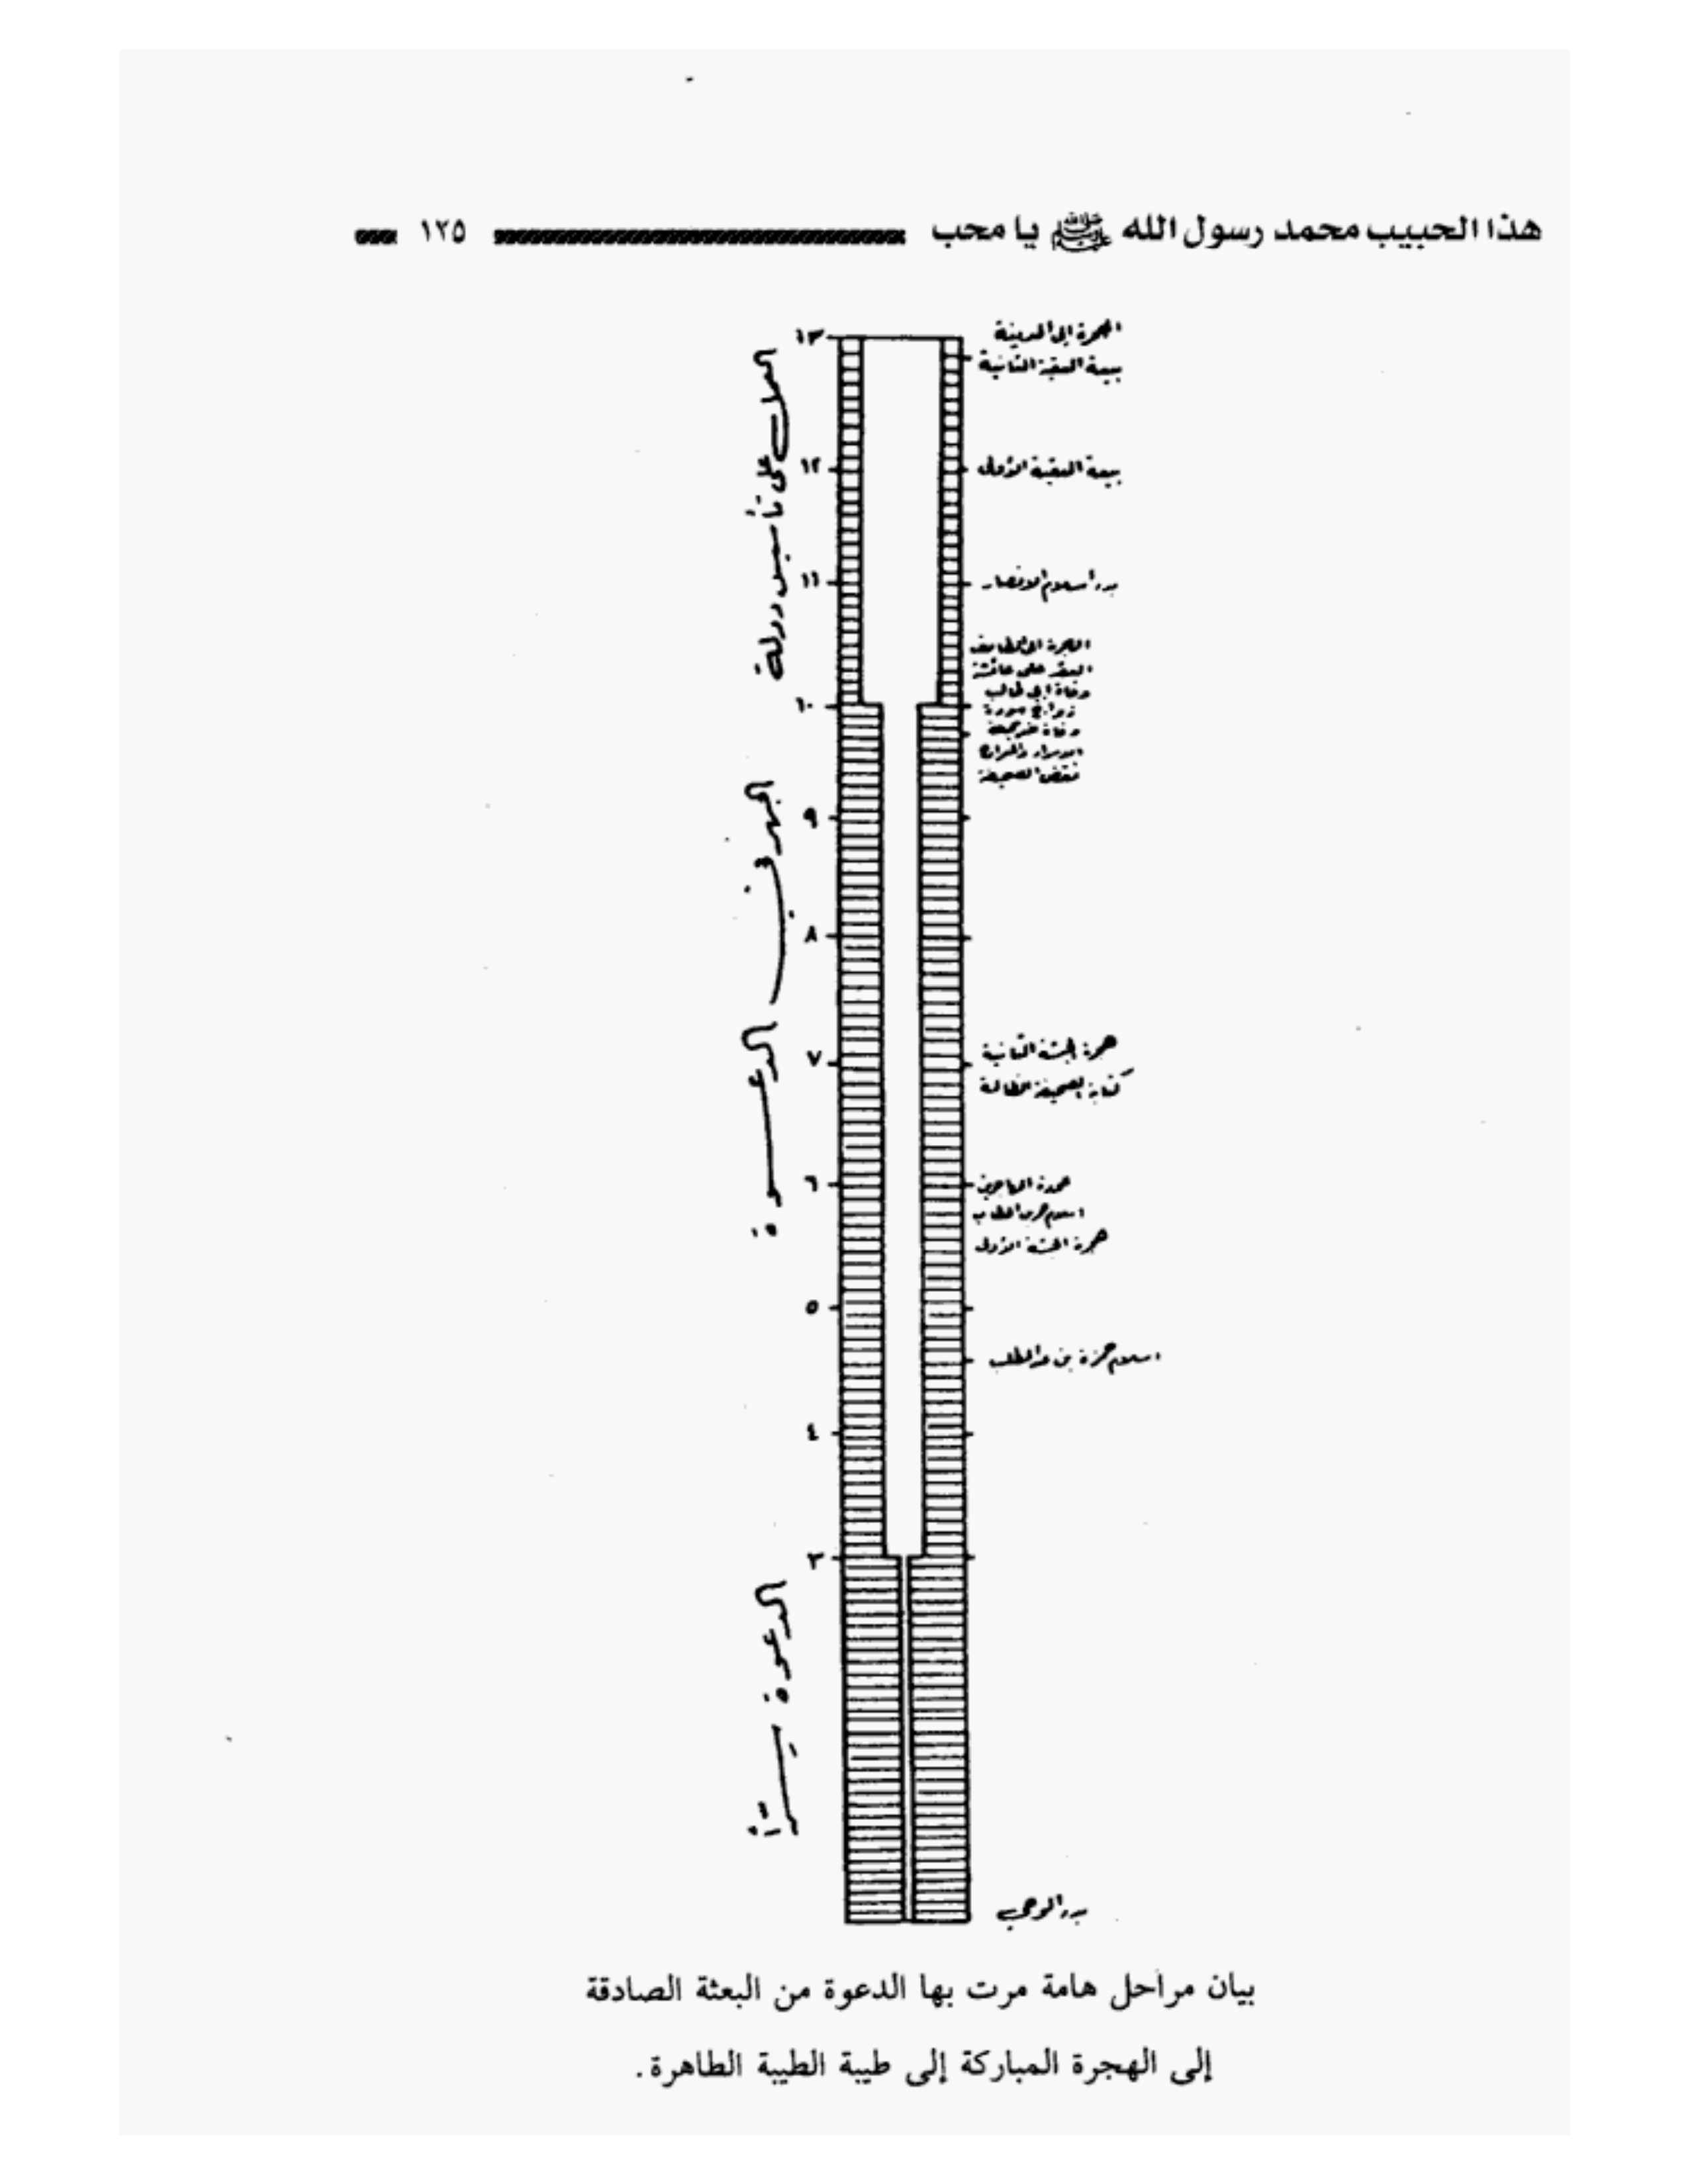 هذا الحبيب محمد رسول الله ﷺ يا محب ١٢٥
الهجرة إلى المدينة
١٣
بيعة العقبة الثانية
بيعة العقبة الأولى
١٢
العمل على تأسيس دولة
بدء إسلام الأنصار
١١
الهجرة إلى الطائف
العقد على عائشة
وفاة أبي طالب
١٠
زواج سودة
وفاة خديجة
الإسراء والمعراج
نقض الصحيفة
٩
٨
الجهر في الدعوة
هجرة الحبشة الثانية
٧
كتابة الصحيفة الظالمة
عودة المهاجرين
٦
إسلام عمر بن الخطاب
هجرة الحبشة الأولى
٥
إسلام حمزة بن عبد المطلب
٤
٣
الدعوة سرًّا
بدء الوحي
بيان مراحل هامة مرت بها الدعوة من البعثة الصادقة
إلى الهجرة المباركة إلى طيبة الطيبة الطاهرة.